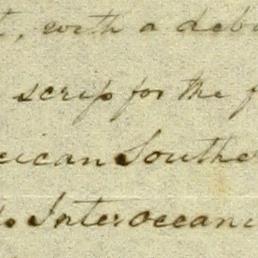 , with a deb
scrip for the f
ican Southe
Interoceani